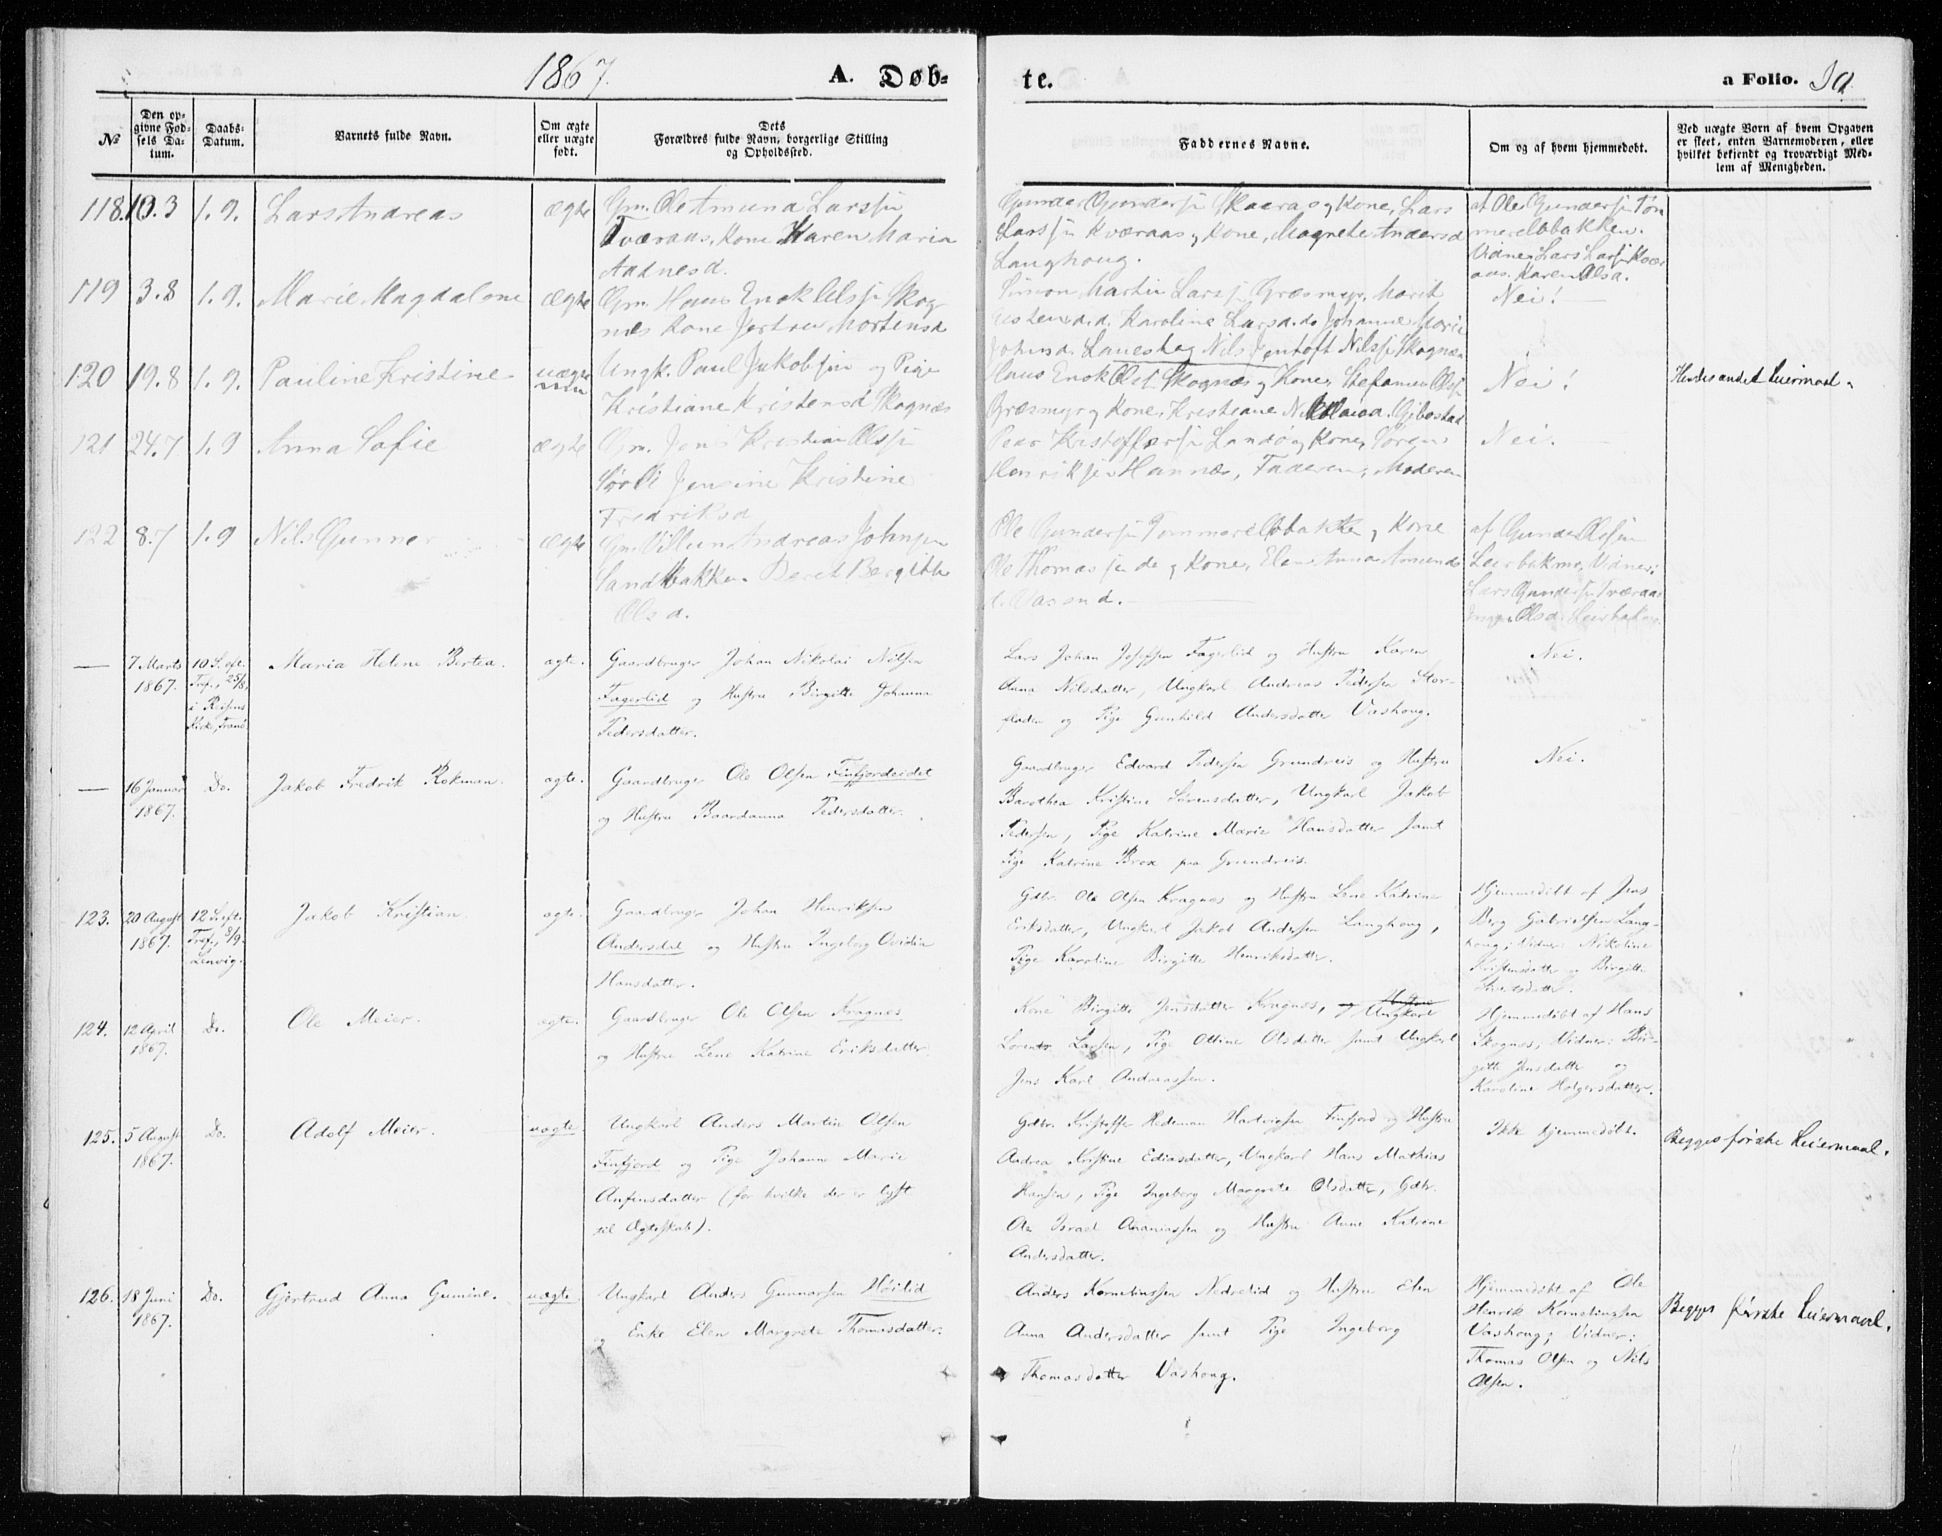 1867.
A. Døb-
te.
a Folio. 30
№
Den op-
givne Fød-
sels Da-
tum.
Daabs-
Datum.
Barnets fulde Navn.
Om ægte
eller uægte
født.
Dets
Forældres fulde Navn, borgerlige Stilling
og Opholdssted.
Faddernes Navne.
Om og af hvem hjemmedøbt.
Ved uægte Børn af hvem Opgaven
er skeet, enten Barnemoderen, eller
hvilket bekjendt og troværdigt Med-
lem af Menigheden.
118. 10.3 1.9. Lars Andreas ægte Gm. Ole Amund Larssen
Tværaas, Kone Karen Maria
Aadnesd.
Gunder Gundersen Skaaras og Kone, Lars
Larssen Kværaas og Kone, Magrete Andersd
Langhoug.
af Ole Gundersen Tøm
merelvbakken.
Vidner Lars Larssen Kvær
aas. Karen Olsd.
119 3.8 1.9. Marie Magdalene ægte Gm. Hans Enok Olssen Skog
næs Kone Jertrud Mortensd
Simon Martin Larssen Græsmyr, Marit
Karoline Larsd. do Johanne Marie
Johnsd. Lanesteg Nils Jentoft Nilssen Skognæs
Nei!
120 19.8 1.9. Pauline Kristine uægte Ungk. Paul Jakobsen og Pige
Kristiane Kristensd Skognæs
Hans Enok Ols. Skognæs og Kone, Stefanus Olssen
Græsmyr og Kone, Kristiane Nikolaisd. Gibostad
Nei!
Hendes andet Leiermaal.
121 24.7 1.9 Anna Sofie ægte Gm. Jens Kristian Olssen
Jensine Kristine
Fredriksd
Peder Kristoffersen Landø og Kone, Søren
Henriksen Hannæs, Faderen, Moderen
Nei.
122 8.7 1.9 Nils Gunner ægte Gm. Villum Andreas Johnsen
Sandbakken. Berit Bergitte
Olsd.
Ole Gundersen Tømmerelvbakke og Kone
Ole Thomassen do og Kone, Elen Anna Amunds
d. Vasand.
af Gunder Olssen
Leirbakmo, Vidner:
Lars Gundersen Tværaas
Olsd. Leirbakmo
— 7 Marts
1867.
10 Sept.
Trof., 25/8,
i Reisens
Kirke, Tranø.
Maria Helene Bertea. ægte. Gaardbruger Johan Nikolai Nilsen
Fagerlid og Hustru Birgitte Johanna
Pedersdatter.
Lars Johan Josefsen Fagerlid og Hustru Karen
Anna Nilsdatter, Ungkarl Andreas Pedersen Stor-
fladen og Pige Gunhild Andersdatter Vashoug.
Nei.
— 16 Januar
1867.
Do. Jakob Fredrik Rokman. ægte. Gaardbruger Ole Olsen Finfjordeidet
og Hustru Baardanna Pedersdatter.
Gaardbruger Edvard Pedersen Grundreis og Hustru
Barothea Kristine Sørensdatter, Ungkarl Jakob
Pedersen, Pige Katrine Marie Hansdatter samt
Pige Katrine Brox paa Grundreis.
Nei.
123. 20 August
1867.
12 Sept.
Trof., 8/9.
Lenvig.
Jakob Kristian. ægte. Gaardbruger Johan Henriksen
Andersdal og Hustru Ingeborg Ovidia
Hansdatter.
Gdbr. Ole Olsen Kragnes og Hustru Lene Katrine
Eriksdatter, Ungkarl Jakob Andersen Langhoug,
Pige Karoline Birgitte Henriksdatter.
Hjemmedøbt af Jens
Berg Gabrielsen Lang-
houg; Vidner: Nikoline
Kristensdatter og Birgitte
124. 12 April
1867.
Do. Ole Meier. ægte. Gaardbruger Ole Olsen Kragnes
og Hustru Lene Katrine Eriksdatter.
Kone Birgitte Jensdatter Kragnes, og Hustru Ungkarl
Lorents Larsen, Pige Oline Olsdatter samt Ungkarl
Jens Karl Andreassen.
Hjemmedøbt af Hans
Skognes, Vidner: Bir-
gitte Jensdatter og
Karoline Holgersdatter.
125. 5 August
1867.
Do. Adolf Meier. uægte Ungkarl Anders Martin Olsen
Finfjord og Pige Johanna Marie
Anfinsdatter (for hvilke der er lyst
til Ægteskab).
Gdbr. Kristoffer Hedeman Hartvigsen Finfjord og Hustru
Andrea Kristine Ediasdatter, Ungkarl Hans Mathias
Hansen, Pige Ingeborg Margrete Olsdatter, Gdbr.
Ole Israel Ananiassen og Hustru Anne Katrine
Andersdatter.
Ikke hjemmedøbt.
Begges første Leiermaal.
126. 18 Juni
1867.
Do. Gjertrud Anna Gumine. uægte. Ungkarl Anders Gunnarsen Høilid
og Enke Elen Margrete Thomasdatter.
Anders Kornelinssen Nedrelid og Hustru Elen
Anna Andersdatter samt Pige Ingeborg
Thomasdatter Vashoug.
Hjemmedøbt af Ole
Henrik Kornelinssen
Vashoug; Vidner:
Thomas Olsen og Nils
Olsen.
Begges første Leiermaal.